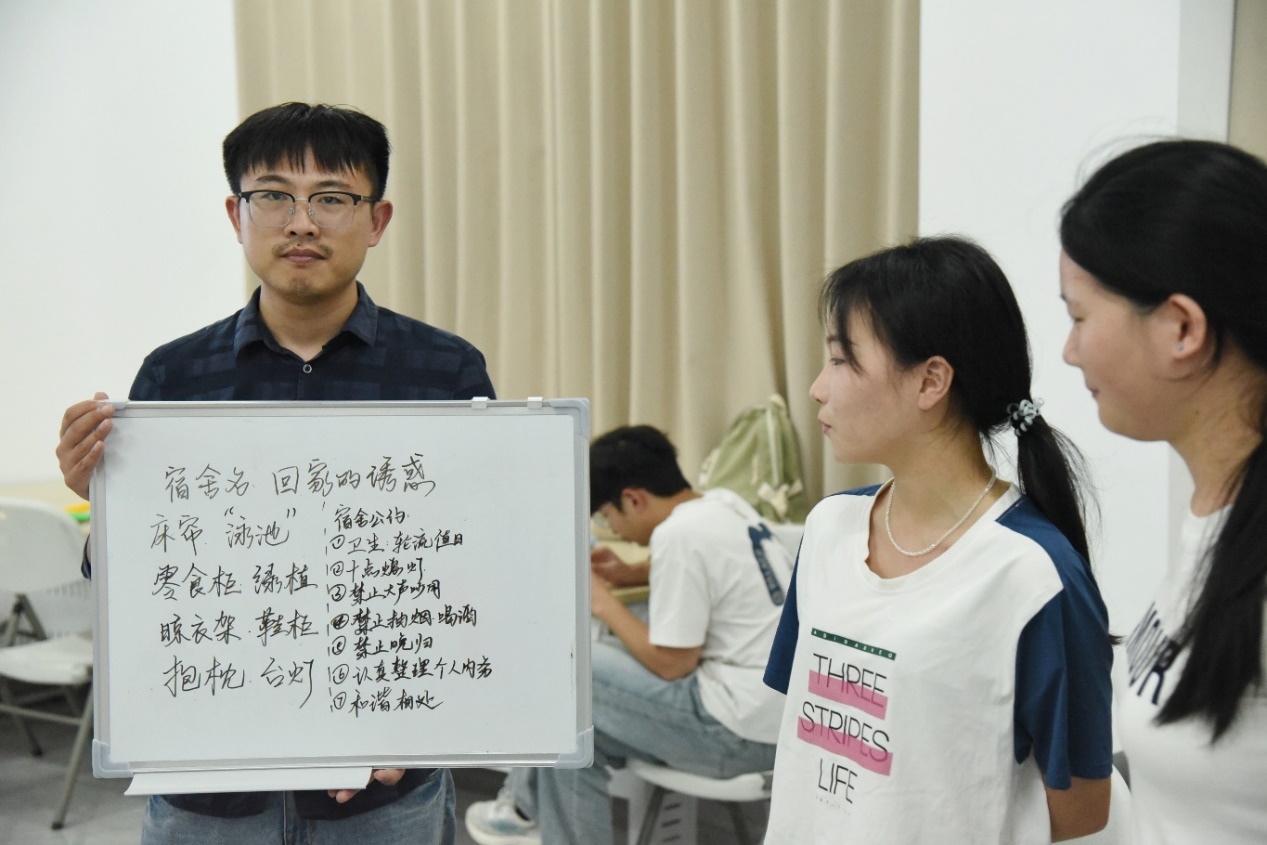 宿舍名 回家的诱惑
床帘 “泳池”
零食柜 绿植
晾衣架 鞋柜
抱枕 台灯
宿舍公约
①卫生:轮流值日
②十点熄灯
③禁止大声吵闹
④禁止抽烟 喝酒
⑤禁止晚归
⑥认真整理个人内务
⑦和谐相处
THREE
STRIPES
LIFE